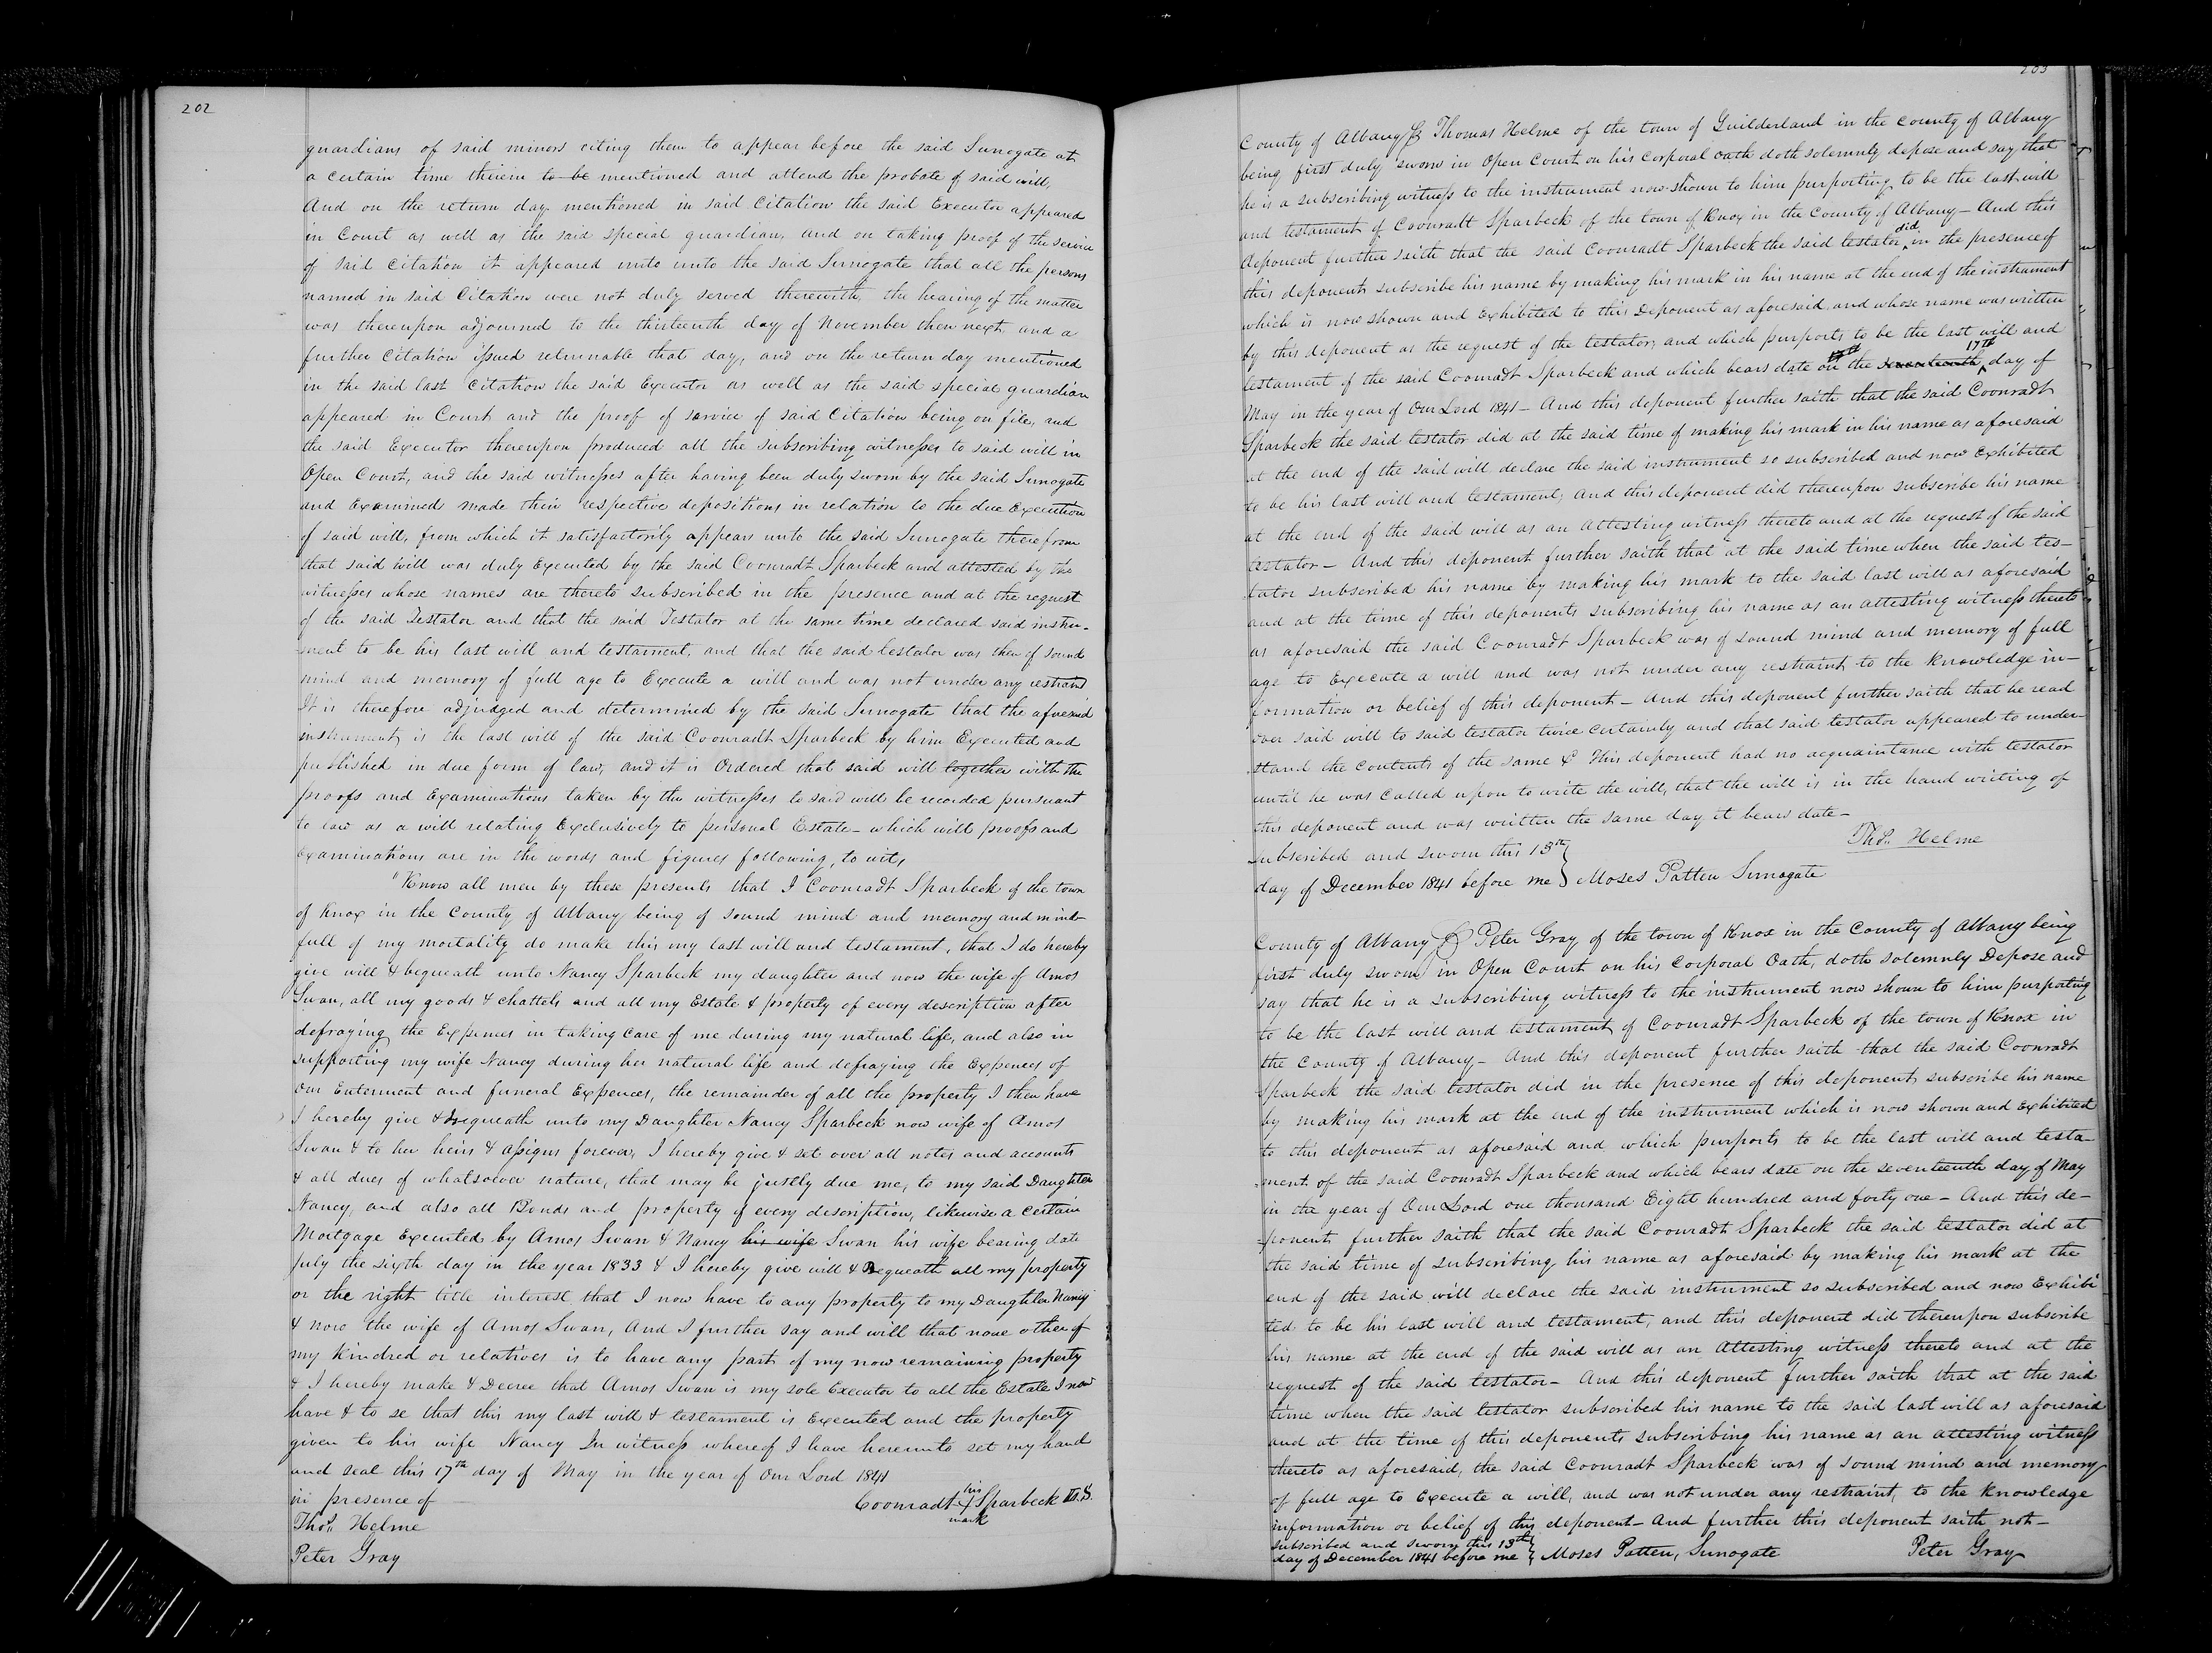 202
guardians of said minors citing them to appear before the said Surrogate at
a certain time therein to be mentioned and attend the probate of said will,
And on the return day mentioned in said Citation the said Executor appeared
in Court as well as the said special guardian, and on taking proof of the service
of said Citation it appeared unto unto the said Surrogate that all the persons
named in said Citation were not duly served therewith, the hearing of the matter
was thereupon adjourned to the thirteenth day of November then next, and a
further Citation issued returnable that day, and on the return day mentioned
in the said last Citation the said Executor as well as the said special guardian
appeared in Court and the proof of service of said Citation being on file, and
the said Executor thereupon produced all the subscribing witnesses to said will in
Open Court, and the said witnesses after having been duly sworn by the said Surrogate
and Examined made their respective depositions in relation to the due Execution
of said will, from which it satisfactorily appears unto the said Surrogate therefrom
that said will was duly Executed by the said Coonradt Sparbeck and attested by the
witnesses whose names are thereto subscribed in the presence and at the request
of the said Testator and that the said Testator at the same time declared said instru-
-ment to be his last will and testament, and that the said testator was then of sound
mind and memory of full age to Execute a will and was not under any restraint
It is therefore adjudged and determined by the said Surrogate that the aforesaid
instrument is the last will of the said Coonradt Sparbeck by him Executed and
published in due form of law, and it is Ordered that said will together with the
proofs and Examinations taken by the witnesses to said will be recorded pursuant
to law as a will relating Exclusively to personal Estate - which will proofs and
Examinations are in the words and figures following, to wit,
"Know all men by these presents that I Coonradt Sparbeck of the town
of Knox in the County of Albany being of sound mind and memory and mind-
full of my mortality do make this my last will and testament, that I do hereby
give will & bequeath unto Nancy Sparbeck my daughter and now the wife of Amos
Swan, all my goods & chattels and all my Estate & property of every description after
defraying the Expences in taking care of me during my natural life, and also in
supporting my wife Nancy during her natural life and defraying the Expences of
our Enterment and funeral Expences, the remainder of all the property I then have
I hereby give & bequeath unto my Daughter Nancy Sparbeck now wife of Amos
Swan & to her heirs & assigns forever, I hereby give & set over all notes and accounts
& all dues of whatsoever nature, that may be justly due me, to my said Daughter
Nancy, and also all Bonds and property of every description, likewise a certain
Mortgage Executed by Amos Swan & Nancy his wife Swan his wife bearing date
July the sixth day in the year 1833 & I hereby give will & Bequeath all my property
or the right title interest that I now have to any property to my Daughter Nancy
& now the wife of Amos Swan, And I further say and will that none other of
my Kindred or relatives is to have any part of my now remaining property
& I hereby make & Decree that Amos Swan is my sole Executor to all the Estate I now
have & to se that this my last will & testament is Executed and the property
given to his wife Nancy In witness whereof I have hereunto set my hand
and seal this 17th day of May in the year of Our Lord 1841
in presence of
Coonradt his X mark Sparbeck L.S.
Thos. Helme
Peter Gray
203
County of Albany ss Thomas Helme of the town of Guilderland in the County of Albany
being first duly sworn in Open Court on his corporal oath doth solemnly depose and say that
he is a subscribing witness to the instrument now shown to him purporting to be the last will
and testament of Coonradt Sparbeck of the town of Knox in the County of Albany - And this
deponent further saith that the said Coonradt Sparbeck the said testator did in the presence of
this deponent subscribe his name by making his mark in his name at the end of the instrument
which is now shown and Exhibited to this Deponent as aforesaid, and whose name was written
by this deponent as the request of the testator, and which purports to be the last will and
testament of the said Coonradt Sparbeck and which bears date on the seventeenth 17th day of
May in the year of Our Lord 1841 - And this deponent further saith that the said Coonradt
Sparbeck the said testator did at the said time of making his mark in his name as aforesaid
at the end of the said will declare the said instrument so subscribed and now Exhibited
to be his last will and testament, And this deponent did thereupon subscribe his name
at the end of the said will as an Attesting witness thereto and at the request of the said
testator - And this deponent further saith that at the said time when the said tes-
tator subscribed his name by making his mark to the said last will as aforesaid
and at the time of this deponents subscribing his name as an attesting witness thereto
as aforesaid the said Coonradt Sparbeck was of sound mind and memory of full
age to Execute a will and was not under any restraint to the knowledge in-
formation or belief of this deponent - And this deponent further saith that he read
over said will to said testator twice certainly and that said testator appeared to under-
stand the contents of the same & This deponent had no acquaintance with testator
until he was called upon to write the will, that the will is in the hand writing of
this deponent and was written the same day it bears date -
Thos. Helme
Subscribed and sworn this 13th
day of December 1841 before me } Moses Patten Surrogate
County of Albany ss Peter Gray of the town of Knox in the County of Albany being
first duly sworn in Open Court on his Corporal Oath, doth solemnly Depose and
say that he is a subscribing witness to the instrument now shown to him purporting
to be the last will and testament of Coonradt Sparbeck of the town of Knox in
the County of Albany - And this deponent further saith that the said Coonradt
Sparbeck the said testator did in the presence of this deponent subscribe his name
by making his mark at the end of the instrument which is now shown and Exhibited
to this deponent as aforesaid and which purports to be the last will and testa-
-ment of the said Coonradt Sparbeck and which bears date on the seventeenth day of May
in the year of Our Lord one thousand Eight hundred and forty one - And this de-
-ponent further saith that the said Coonradt Sparbeck the said testator did at
the said time of subscribing his name as aforesaid by making his mark at the
end of the said will declare the said instrument so subscribed and now Exhibi
ted to be his last will and testament, and this deponent did thereupon subscribe
his name at the end of the said will as an Attesting witness thereto and at the
request of the said testator - And this deponent further saith that at the said
time when the said testator subscribed his name to the said last will as aforesaid
and at the time of this deponents subscribing his name as an attesting witness
thereto as aforesaid, the said Coonradt Sparbeck was of sound mind and memory
of full age to Execute a will, and was not under any restraint, to the knowledge
information or belief of this deponent - And further this deponent saith not -
Subscribed and sworn this 13th
day of December 1841 before me } Moses Patten, Surrogate Peter Gray